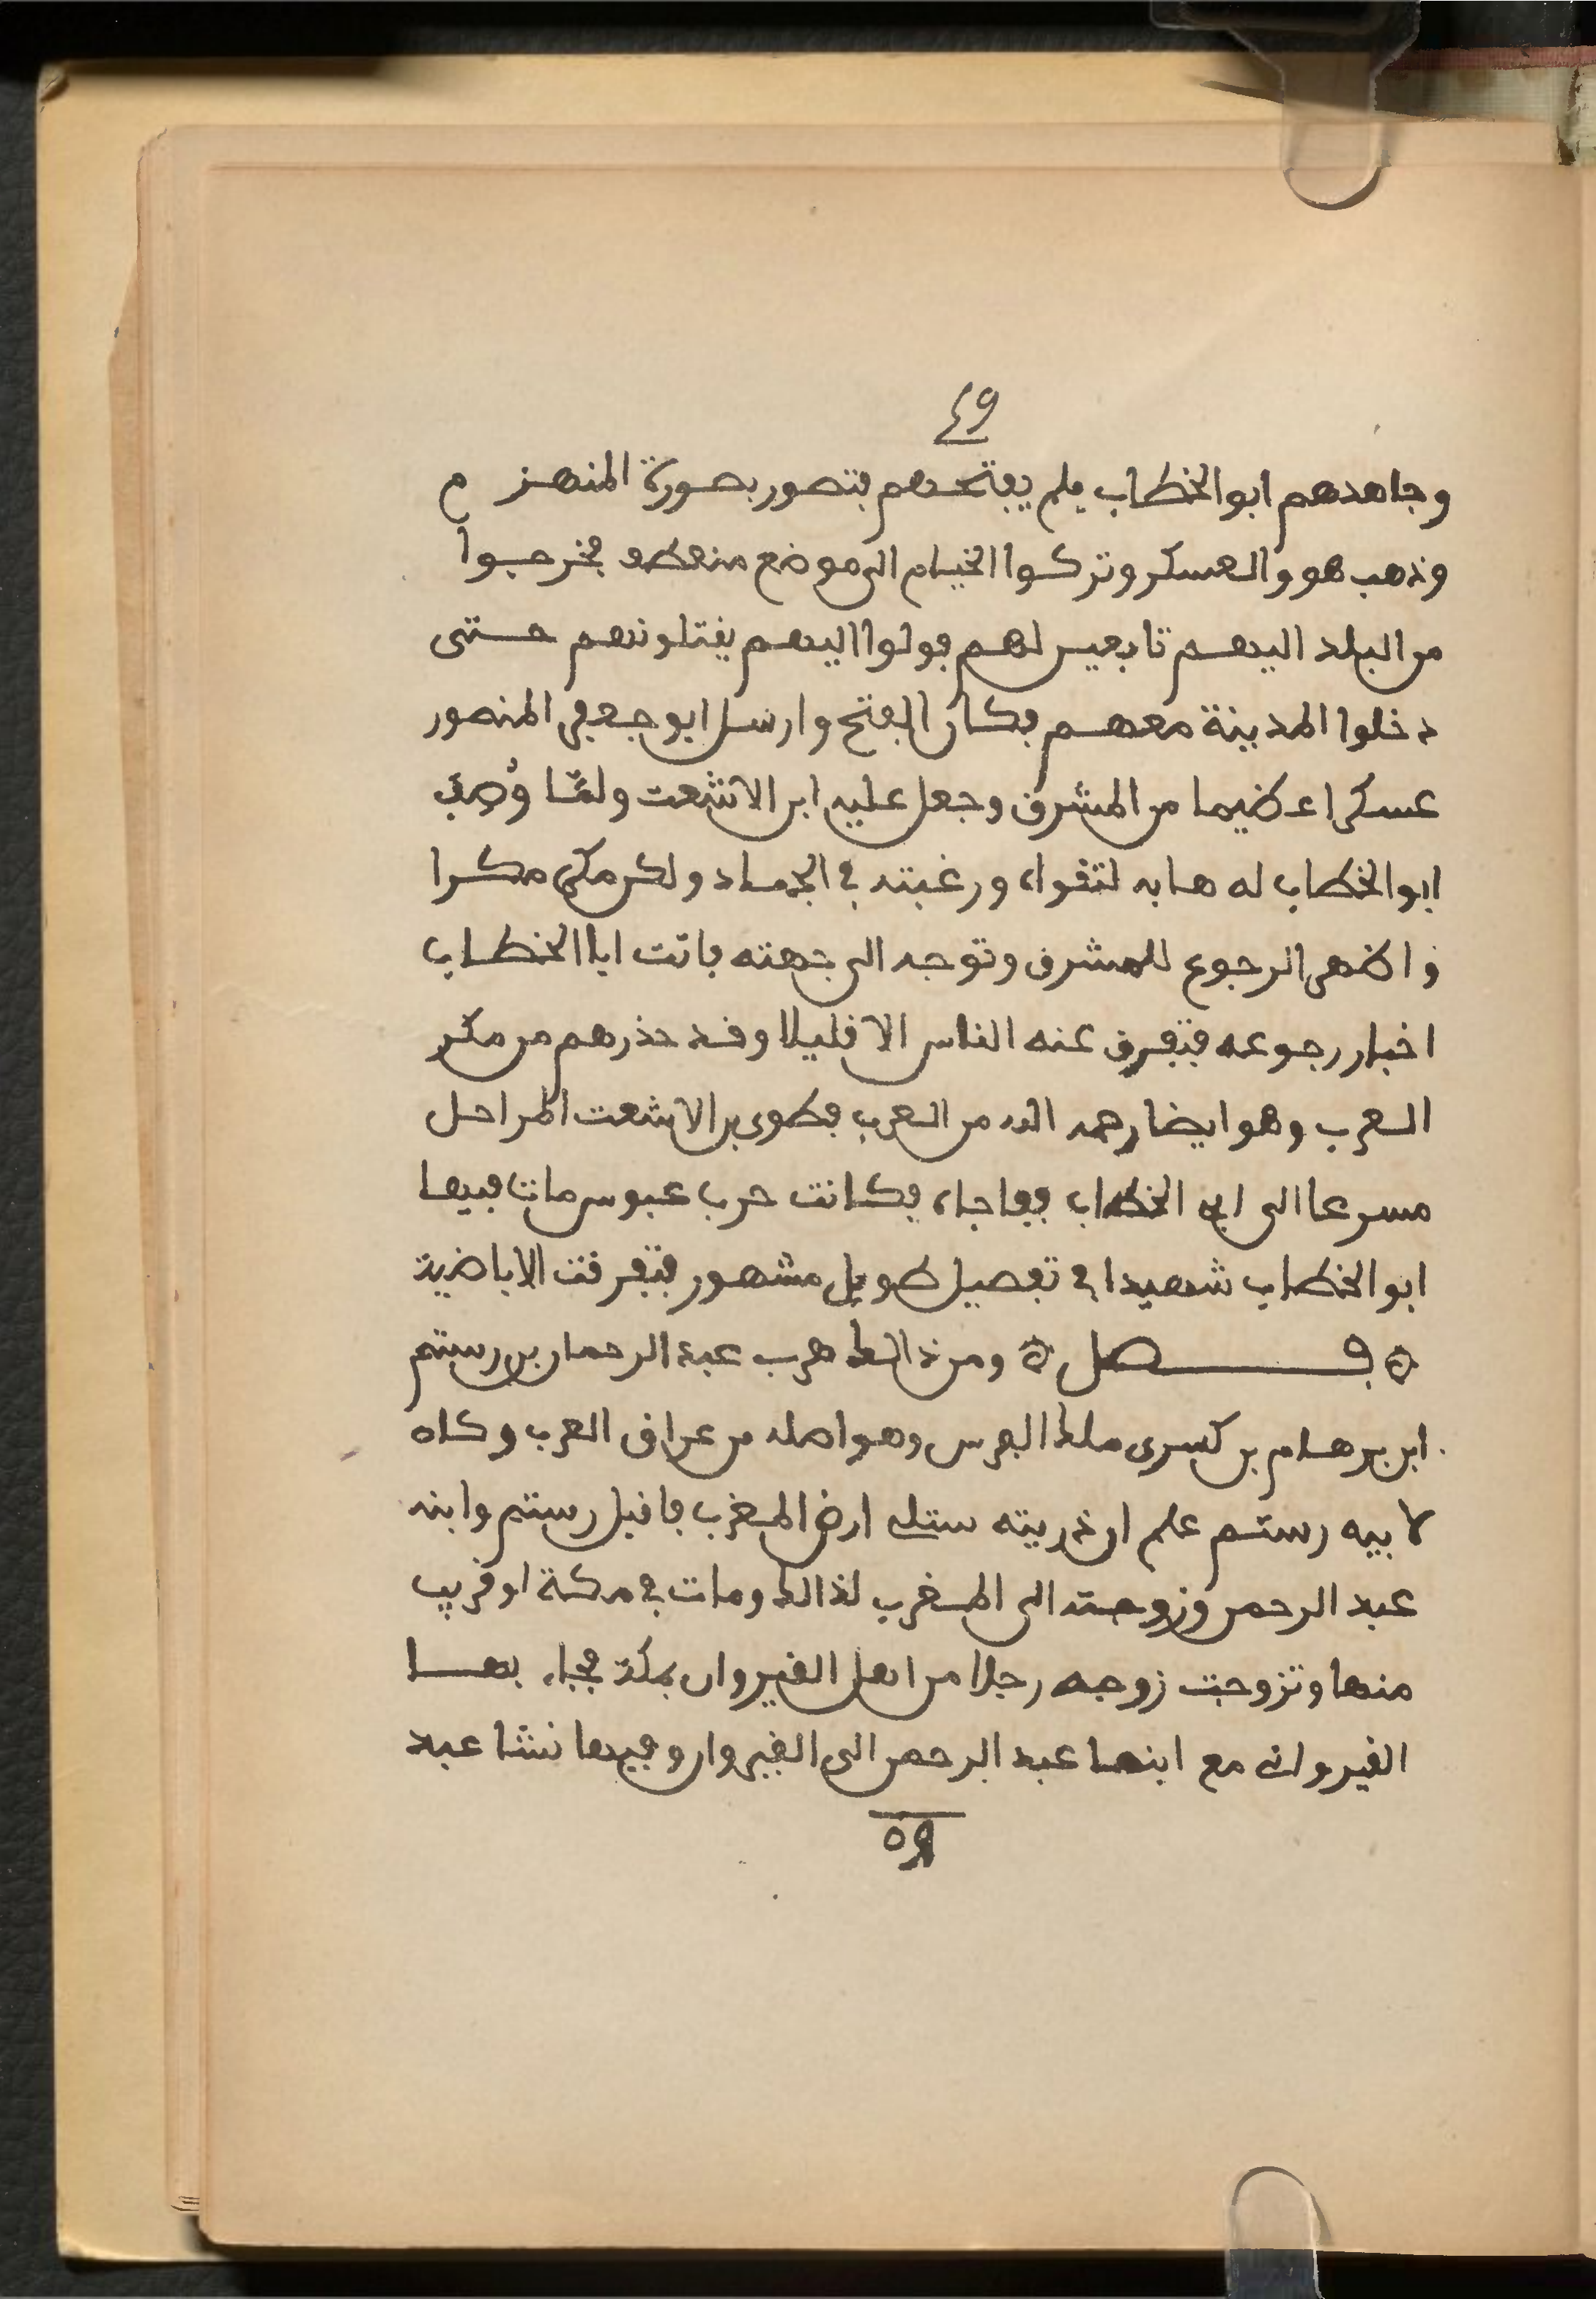 ٤٩
وجاهدهم ابو الخطاب فلم يفتحهم فتصور بصورة المنهزم
وذهب هو والعسكر وتركوا الخيام الى موضع منعطف فخرجوا
من البلد اليهم تابعين لهم فولوا اليهم يقتلونهم حتى
دخلوا المدينة معهم فكان الفتح وارسل ابو جعفر المنصور
عسكرا عظيما من المشرق وجعل عليه ابن الاشعت ولمّا وُصِف
ابو الخطاب له هابه لتقواه ورغبته في الجهاد ولكن مكر مكرا
واظهر الرجوع للمشرق وتوجه الى جهته فاتت ابا الخطاب
اخبار رجوعه فتفرق عنه الناس الا قليلا وقد حذرهم من مكر
العرب وهو ايضا رحمه الله من العرب فطوى بن الاشعت المراحل
مسرعا الى ابي الخطاب ففاجاه فكانت حرب عبوس مات فيها
ابو الخطاب شهيدا في تفصيل طويل مشهور فتفرقت الاباضية
۞ فصل ۞ ومن ذالك هرب عبد الرحمان بن رستم
ابن بهرام بن كسرى ملك الفرس وهو اصله من عراق العرب وكان
لابيه رستم علم ان ذريته ستلي ارض المغرب فاقبل رستم وابنه
عبد الرحمن وزوجته الى المغرب لذالك ومات في مكة او قريب
منها وتزوجت زوجه رجلا من اهل القيروان بمكة فجاء بها
القيرواني مع ابنها عبد الرحمن الى القيروان وفيها نشا عبد